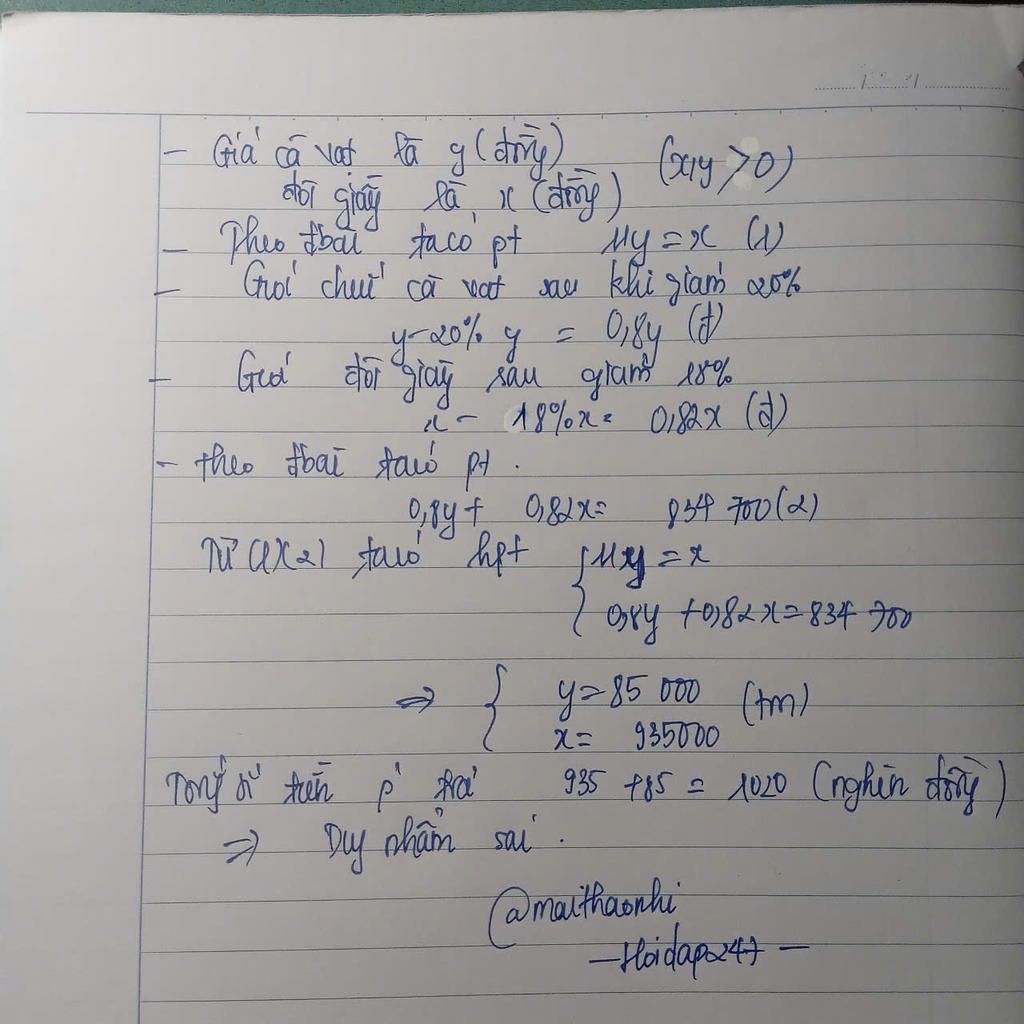 - Giá cà vạt là y (đồng)
(x,y > 0)
đôi giầy là x (đồng)
- Theo đbài ta có pt 11y = x (1)
- Giá chiế cà vạt sau khi giảm 20%
y - 20% y = 0,8y (đ)
- Giá đôi giầy sau giảm 18%
x - 18%x = 0,82x (đ)
- theo đbài ta có pt .
0,8y + 0,82x = 834 700 (2)
Từ (1)(2) ta có hpt { 11y = x
0,8y + 0,82x = 834 700
=> { y = 85 000 (tm)
x = 935000
Tổng số tiền p' trả 935 + 85 = 1020 (nghìn đồng)
=> Duy nhẩm sai .
@maithaonhi
- Hoidap247 -